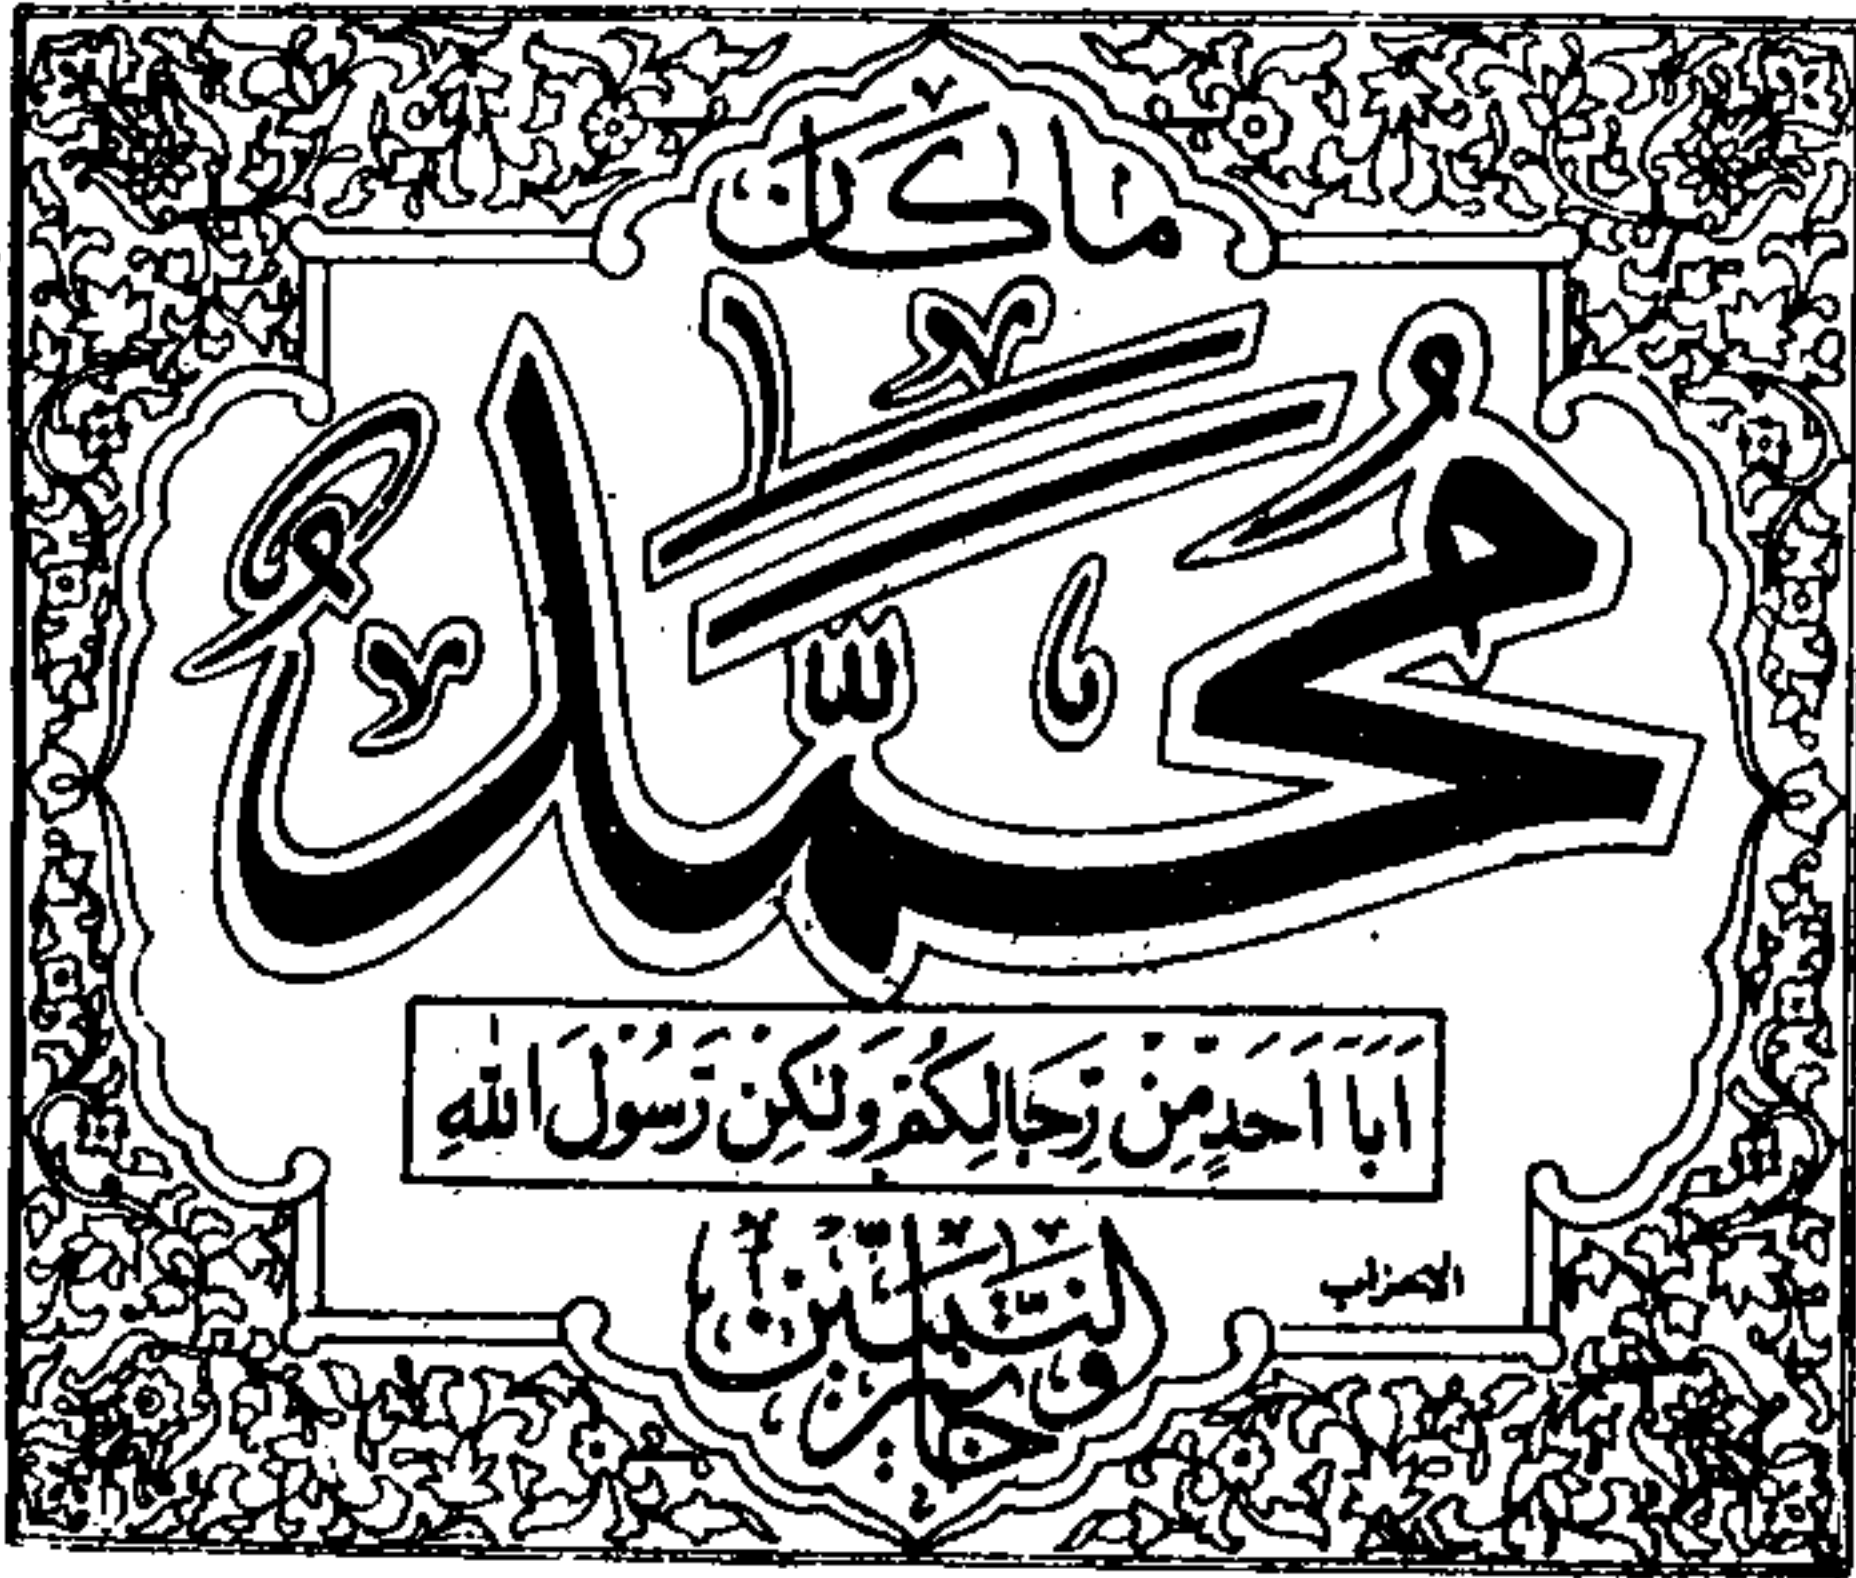 ما كان
مُحَمَّدٌ
اَبَاۤ اَحَدٍ مِّنْ رِّجَالِكُمْ وَلٰكِنْ رَّسُوْلَ اللّٰهِ
وخاتم النبيين
الاحزاب